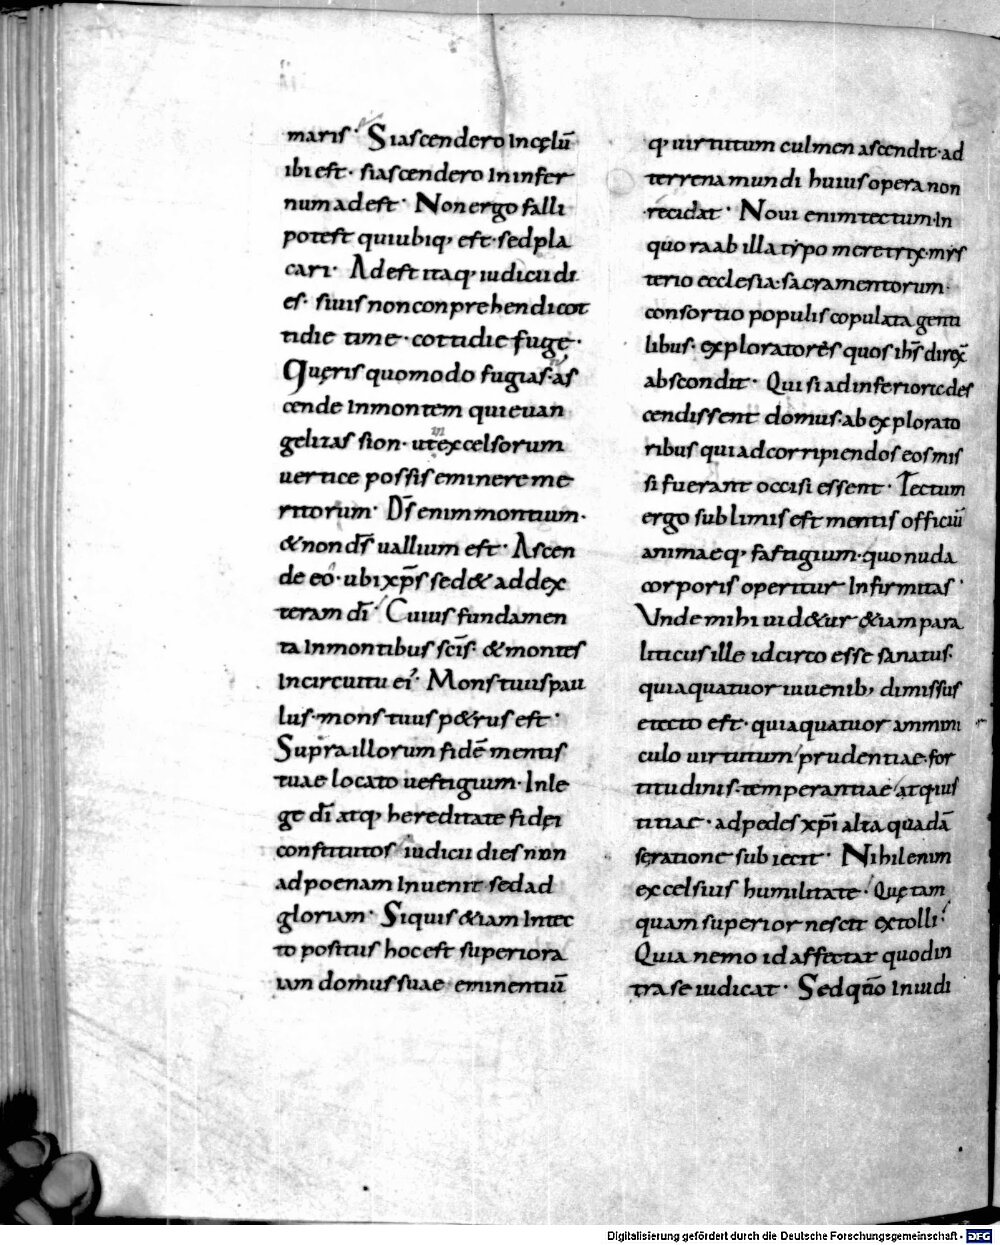 maris· Siascendero Incęlū
ibi est· siascendero In infer
num adest· Non ergo falli
potest qui ubiq; est· sed pla
cari· Adest itaq; iudicii di
es· si uis non conprehendi cot
tidie time· cottidie fuge·
Queris quomodo fugias· as
cende In montem qui euan
gelizas sion· ut In excelsorum
uertice possis eminere me
ritorum· D̄s enim montium·
& non d̄s uallium est· Ascen
de eo· ubi xp̄s sed& ad dex
teram dī· Cuius fundamen
ta In montibus sc̄is· & montes
In circuitu ei'· Mons tuus pau
lus· mons tuus p&rus est·
Supra illorum fidē mentis
tuae locato uestigium· In le
ge dī atq; hereditate fidei
constitutos iudicii dies non
ad poenam Inuenit· sed ad
gloriam· Siquis &iam In tec
to positus hoc est superiora
iam domus suae eminentiū
q; uirtutum culmen ascendit· ad
terrena mundi huius opera non
recidat· Noui enim tectum· In
quo raab illa typo meretrix· mys
terio ecclesia· sacramentorum·
consortio populis copulata genti
libus· exploratores quos ih̄s direx̄
abscondit· Qui si ad inferiore des
cendissent domus· ab explorato
ribus qui ad corripiendos eos mis
si fuerant occisi essent· Tectum
ergo sublimis est mentis officiū
animaeq; fastigium· quo nuda
corporis operitur Infirmitas·
Unde mihi uid&ur &iam para
liticus ille idcirco esse sanatus·
quia quatuor iuuenib; dimissus
e tecto est· quia quatuor ammini
culo uirtutum prudentiae· for
titudinis· temperantiae atq; ius
titiae· ad pedes xp̄i alta quadā
seratione subiecit· Nihil enim
excelsius humilitate· Quę tam
quam superior nescit extolli·
Quia nemo id affectat quod in
tra se iudicat· Sed qn̄o In iudi
Digitalisierung gefördert durch die Deutsche Forschungsgemeinschaft - DFG